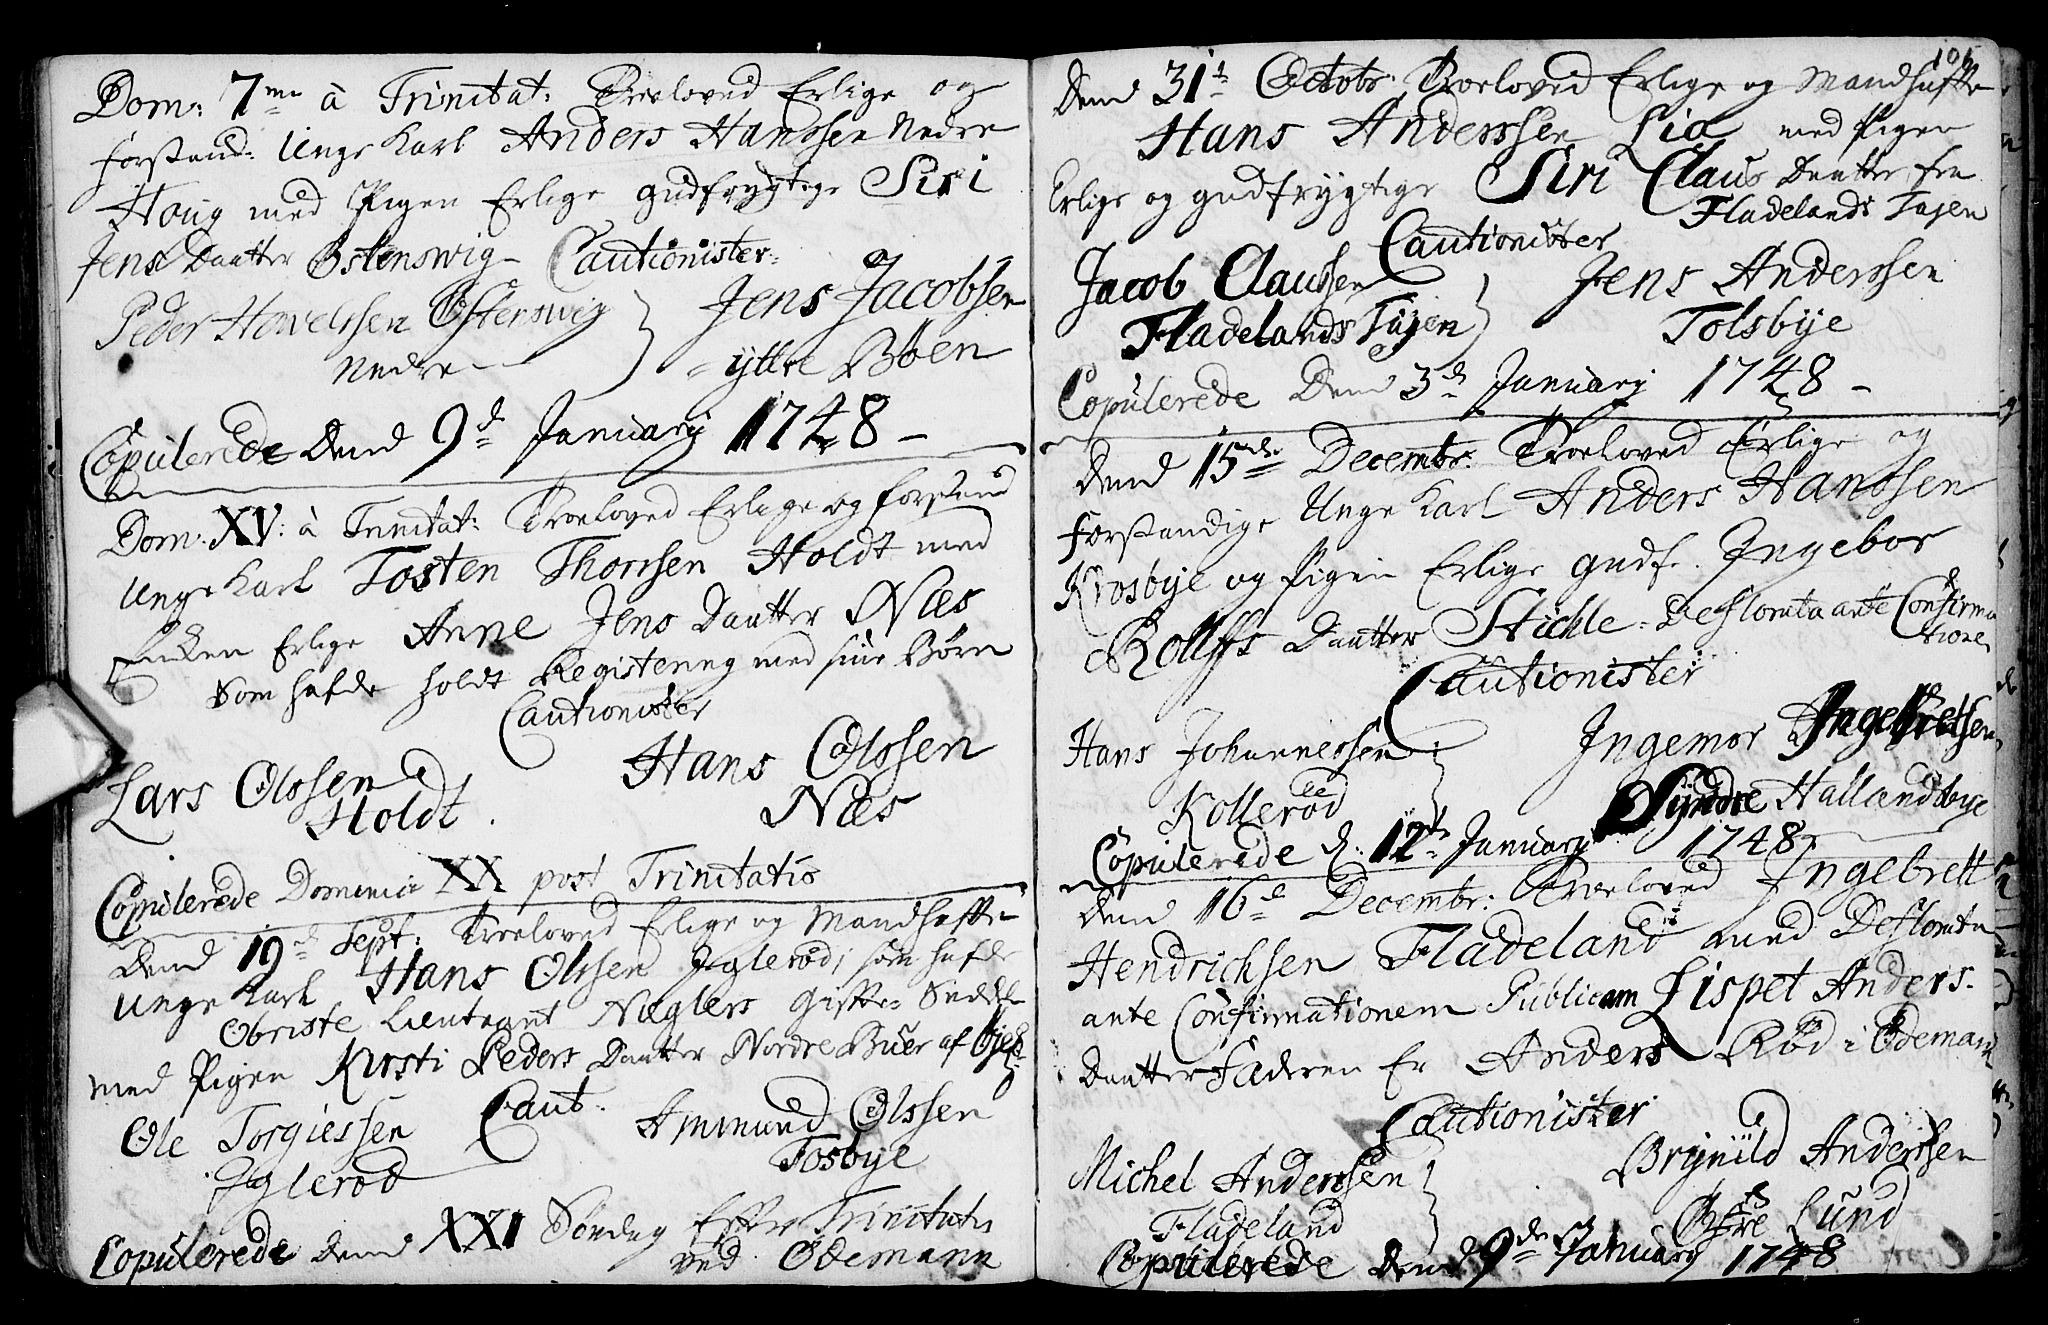 Dom: 7me à Trinitat: Troloved Erlige og
forstand: Unge Karl Anders Hanssen Nedre
Houg med Pigen Erlige gudfrygtige Siri
Jens Daatter Østenswig - Cautionister:
Peder Howelssen Østenswig Jens Jacobsen
Nedre - ÿttre Böen
Copulerede Dend 9d January 1748 -
Dom: XV: à Trinitat: Troeloved Erlige og forstand
Unge Karl Tosten Thorssen Holdt med
Enken Erlige Anne Jens Daatter Næs
Som hafde holdt Registering med sine Børn
Cautionister
Lars Olssen Hans Olssen
Holdt. Næs
Copulerede Dominica XX post Trinitatis
Dend 19d Sept: Troeloved Erlige og Mandhaffte
Unge Karl Hans Olssen Iglerød, som hafde
Obriste Lieutnant Næglers Giffte-Seddel
med Pigen Kirsti Peders Daatter Nordre Buer af
Ole Torgiessen Caut: Ammund Olssen
Iglerød Tosbye
Copulerede dend XXI Søndag Effter Trinitatis
ved Ødemann
106
Dend 31t Octobr: Troeloved Erlige og Mandhaffte
Hans Anderssen Lia med Pigen
Erlige og gudfrygtige Siri Claus Daatter fra
Fladelands Tajen
Cautionister
Jacob Claussen Jens Anderssen
Fladelands Tajen Tolsbye
Copulerede Dend 3d January 1748 -
Dend 15de Decembr: Troeloved Erlige og
forstandige Unge Karl Anders Hanssen
Krosbye og Pigen Erlige gudf. Ingebor
Rolffs Daatter Stichle - Deflorata ante Confirma
tione
Cautionister
Hans Johannessen Ingemor Ingebretsen
Kollerød Syndre Hallandsbye
Copulerede d: 12te January 1748
Dend 16d Decembr: Troeloved Ingebrett
Hendrichsen Fladeland med Deflorata
ante Confirmationem Publicam Lispet Anders-
Daatter Faderen Er Anders Rød i Ødemark
Cautionister
Michel Anderssen Brynild Anderssen
Fladeland Østre Lund
Copulerede Dend 9de January 1748